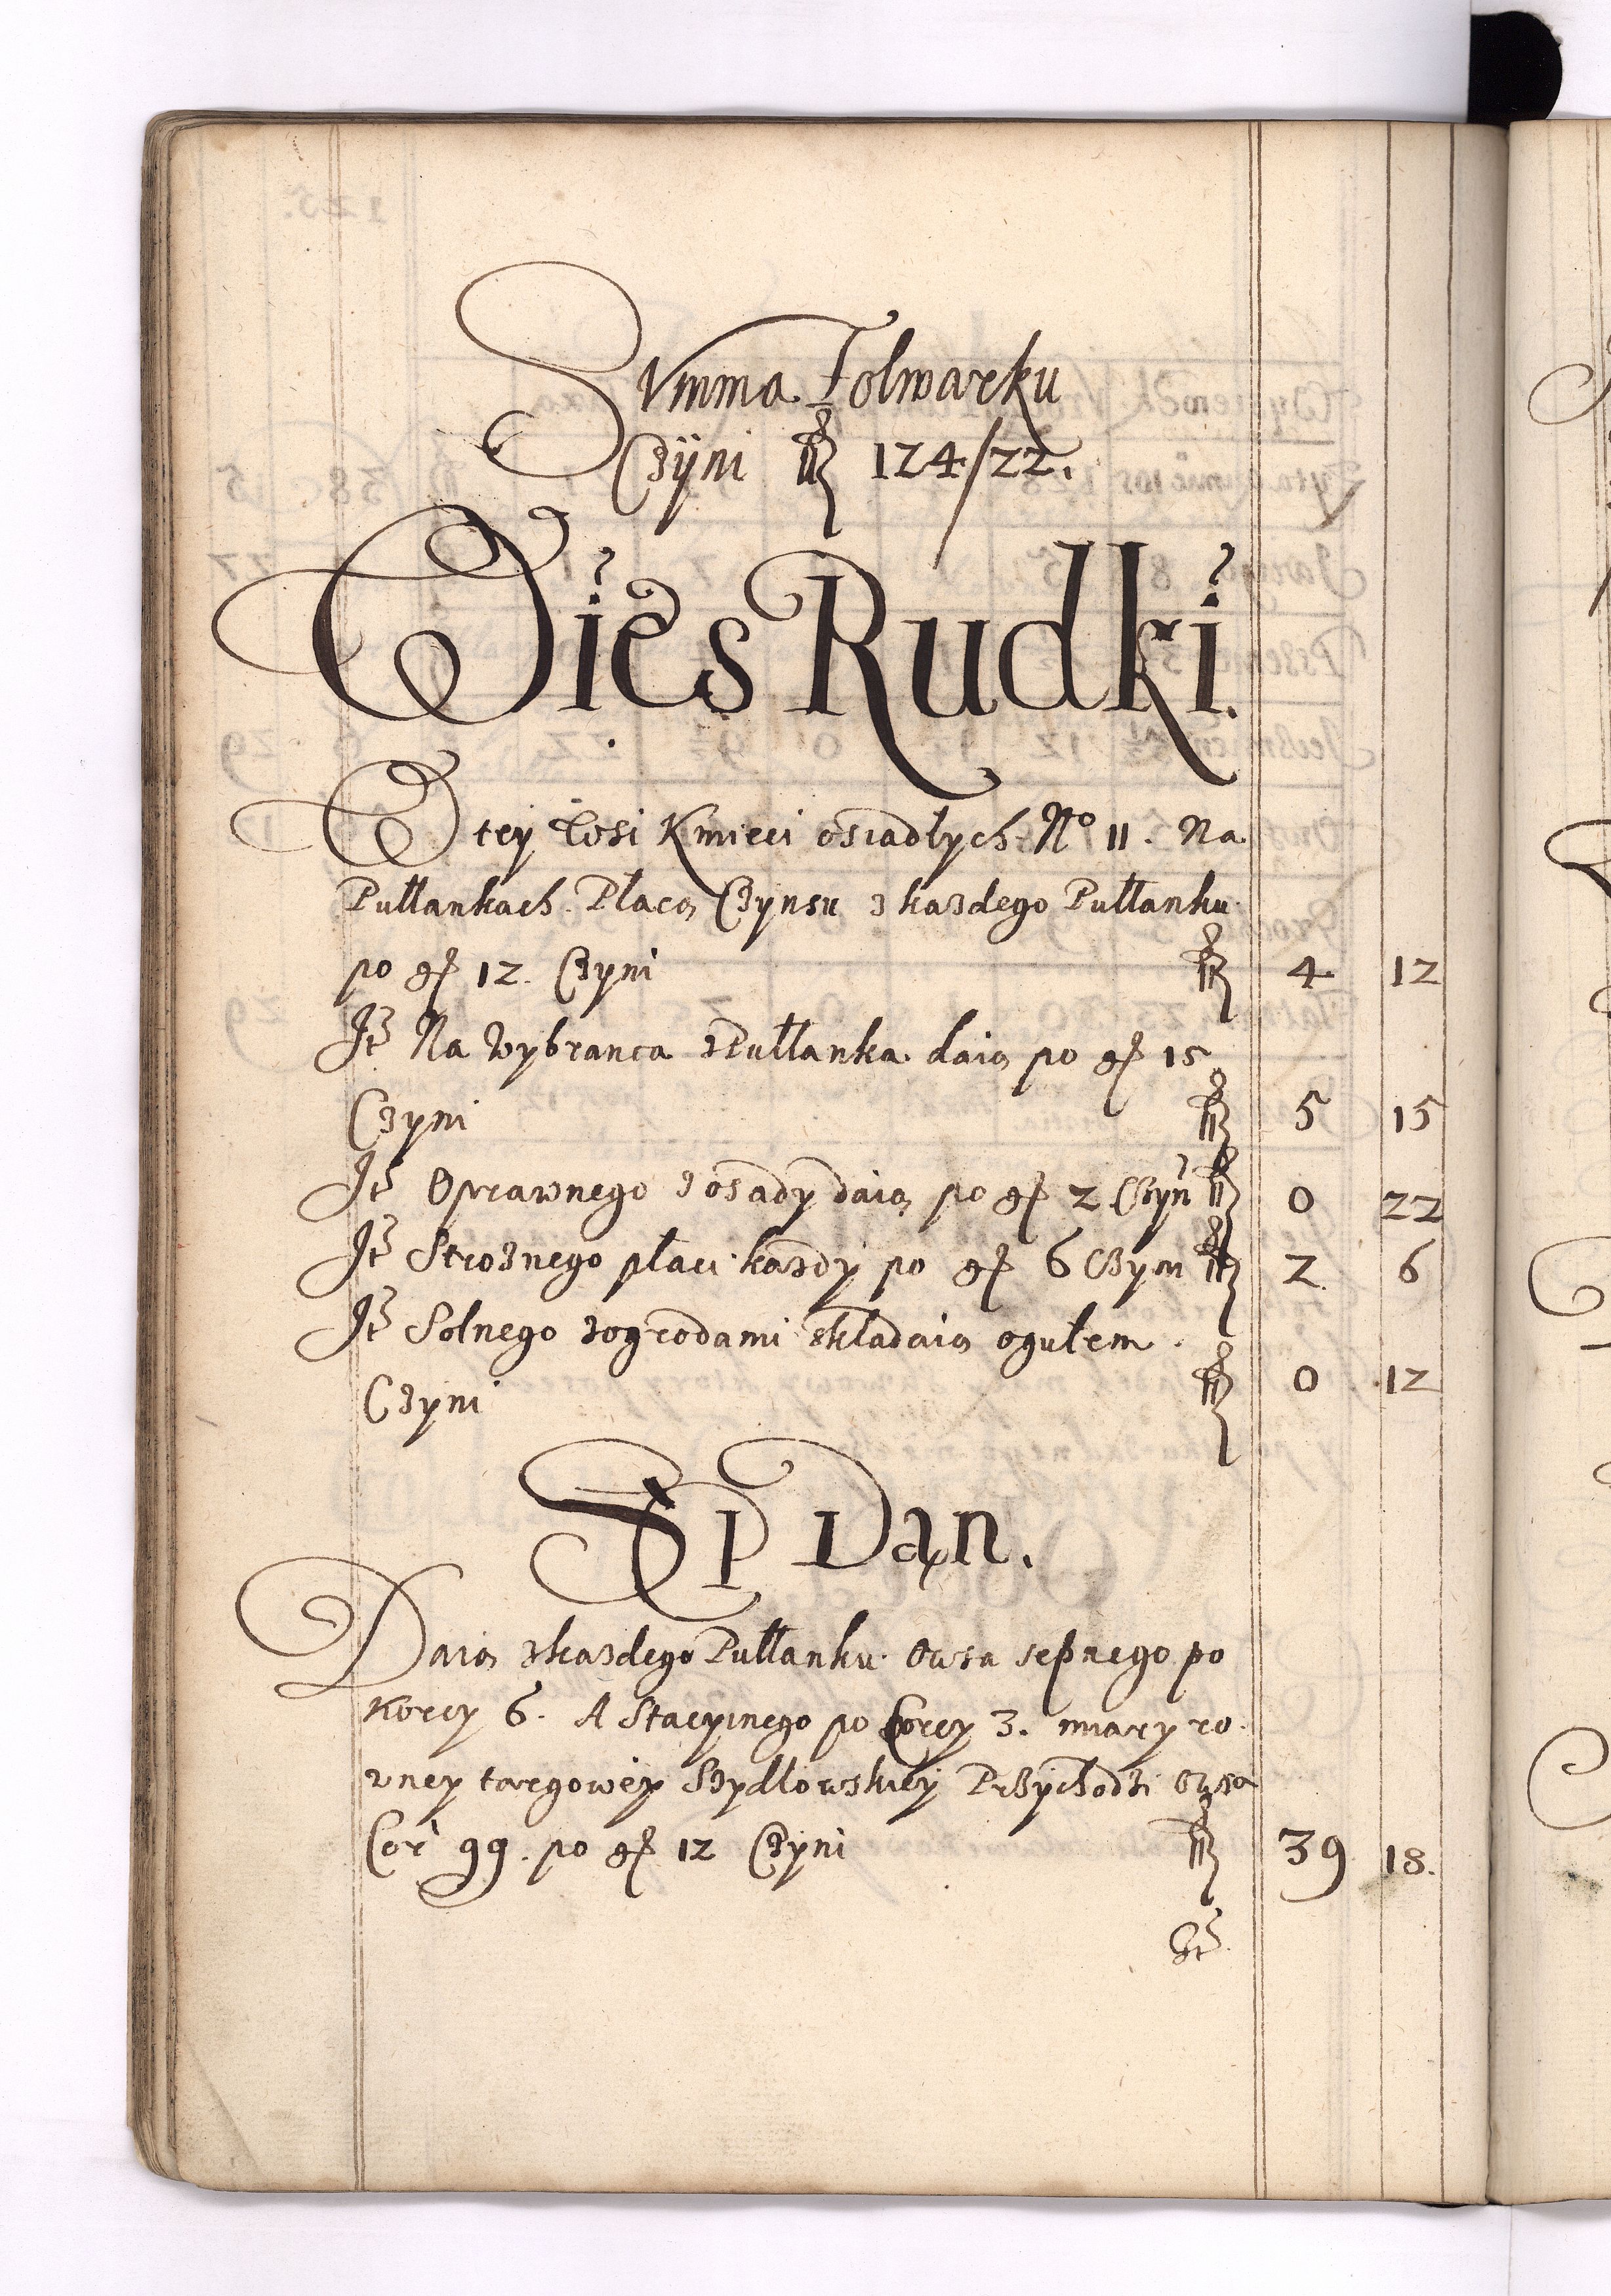 Summa Folwarku
Czÿni fl 124/22.
Wies Rudki.
W tey Wosi Kmieci osiadłych No 11. Na
Pułłankach. Płacą Czynsu z kazdego Pułłanku
po gr 12. Czyni fl 4 12
Itē Na Wybranca z Pułłanka daią po gr 15
Czyni fl 5 15
Itē Oprawnego z osady daią po gr 2 Czyń fl 0 22
Itē Stroznego płaci kazdy po gr 6 Czyni fl 2 6
Itē Solnego zogrodami składaią ogułem
Czyni fl 0 12
SEP Dan.
Daią z kazdego Pułłanku Owsa sepnego po
Korcy 6. A Stacyinego po Corcy 3. miary ro
wney targowey Szydłowskiey Przychodzi Owsa
Cor 99. po gr 12 Czyni fl 39 18.
Itē